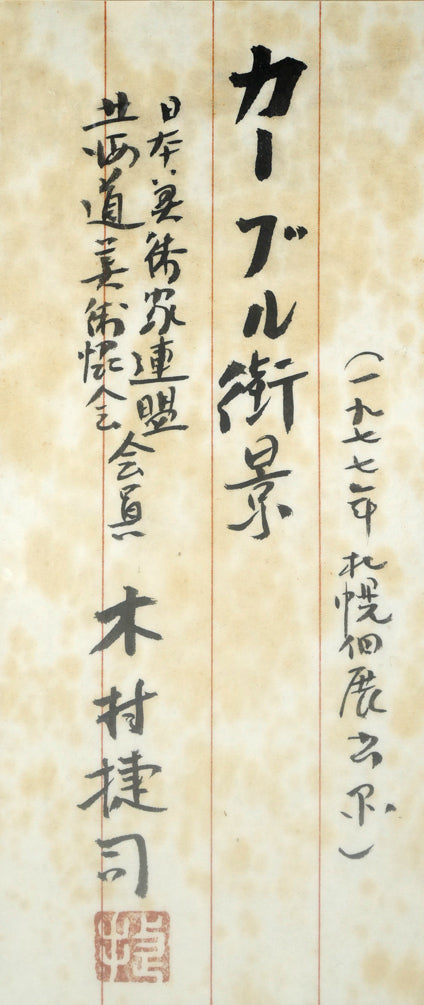 （一九七七年札幌個展出品）
カーブル街景
日本美術家連盟
北海道美術協会
会員
木村捷司